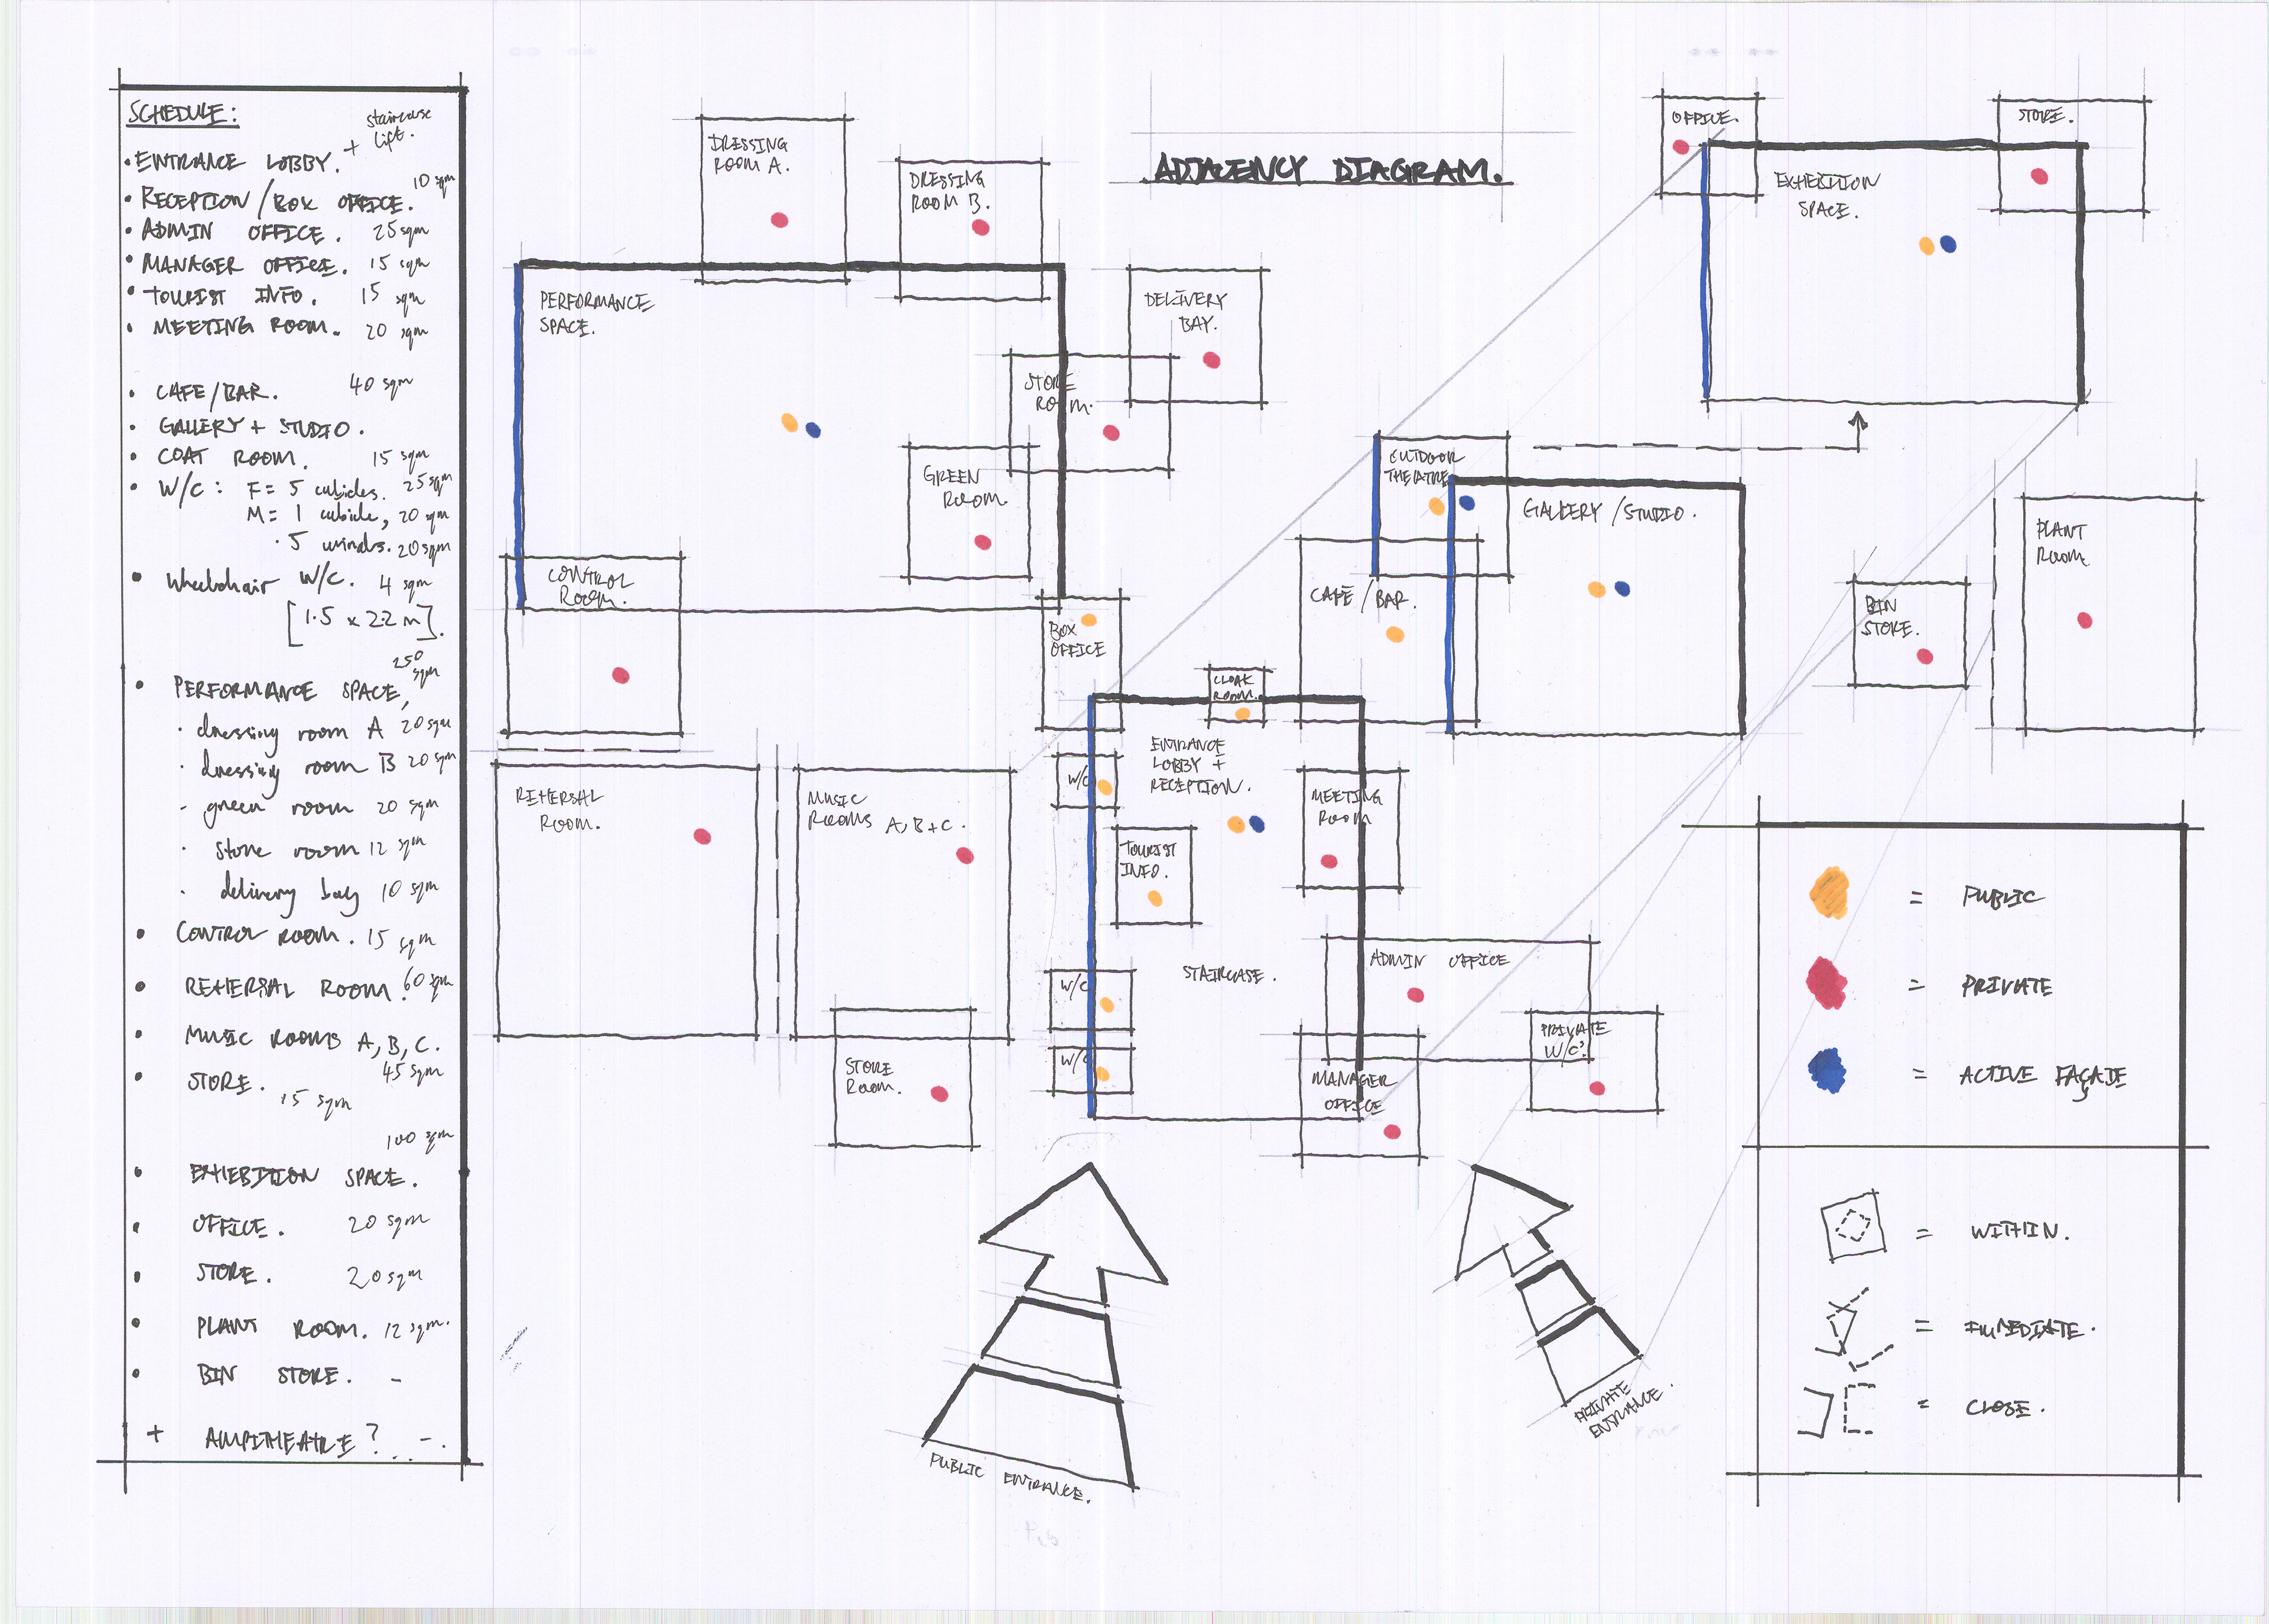 SCHEDULE:
+ staircase
lift.
• ENTRANCE LOBBY.
• RECEPTION/BOX OFFICE. 10 sqm
• ADMIN OFFICE. 25 sqm
• MANAGER OFFICE. 15 sqm
• TOURIST INFO. 15 sqm
• MEETING ROOM. 20 sqm
• CAFE/BAR. 40 sqm
• GALLERY + STUDIO.
• COAT ROOM. 15 sqm
• W/C: F = 5 cubicles. 25 sqm
M = 1 cubicle, 20 sqm
· 5 urinals. 20 sqm
• Wheelchair W/C. 4 sqm
[1.5 x 2.2 m].
• PERFORMANCE SPACE, 250 sqm
· dressing room A 20 sqm
· dressing room B 20 sqm
- green room 20 sqm
· store room 12 sqm
· delivery bay 10 sqm
• CONTROL ROOM. 15 sqm
• REHERSAL ROOM. 60 sqm
• MUSIC ROOMS A, B, C.
45 sqm
• STORE.
15 sqm
100 sqm
• EXHIBITION SPACE.
• OFFICE. 20 sqm
• STORE. 20 sqm
• PLANT ROOM. 12 sqm.
• BIN STORE. -
+ AMPITHEATRE? -.
ADJACENCY DIAGRAM.
DRESSING
ROOM A.
DRESSING
ROOM B.
PERFORMANCE
SPACE.
DELIVERY
BAY.
STORE
ROOM.
GREEN
ROOM.
CONTROL
ROOM.
BOX
OFFICE
REHERSAL
ROOM.
MUSIC
ROOMS A, B + C.
STORE
ROOM.
CLOAK
ROOM.
ENTRANCE
LOBBY +
RECEPTION.
W/C
TOURIST
INFO.
STAIRCASE.
W/C
W/C
MEETING
ROOM
ADMIN OFFICE
MANAGER
OFFICE
PRIVATE
W/C?
OUTDOOR
THEATRE
CAFE/BAR.
GALLERY/STUDIO.
OFFICE.
STORE.
EXHIBITION
SPACE.
BIN
STORE.
PLANT
ROOM.
PUBLIC ENTRANCE.
PRIVATE
ENTRANCE.
= PUBLIC
= PRIVATE
= ACTIVE FAÇADE
= WITHIN.
= IMMEDIATE.
= CLOSE.